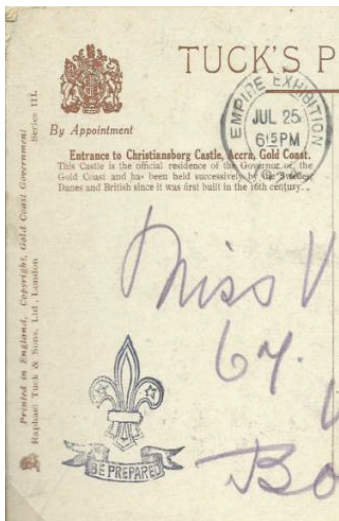 TUCK'S P
By Appointment
EMPIRE EXHIBITION
JUL 25
615PM
Entrance to Christiansborg Castle, Accra, Gold Coast.
This Castle is the official residence of the Governor of the
Gold Coast and has been held successively by the Swedes,
Danes and British since it was first built in the 16th century.
Series III.
Printed in England, Copyright, Gold Coast Government
Raphael Tuck & Sons, Ltd, London
Miss V
64.
BE PREPARED
Bo